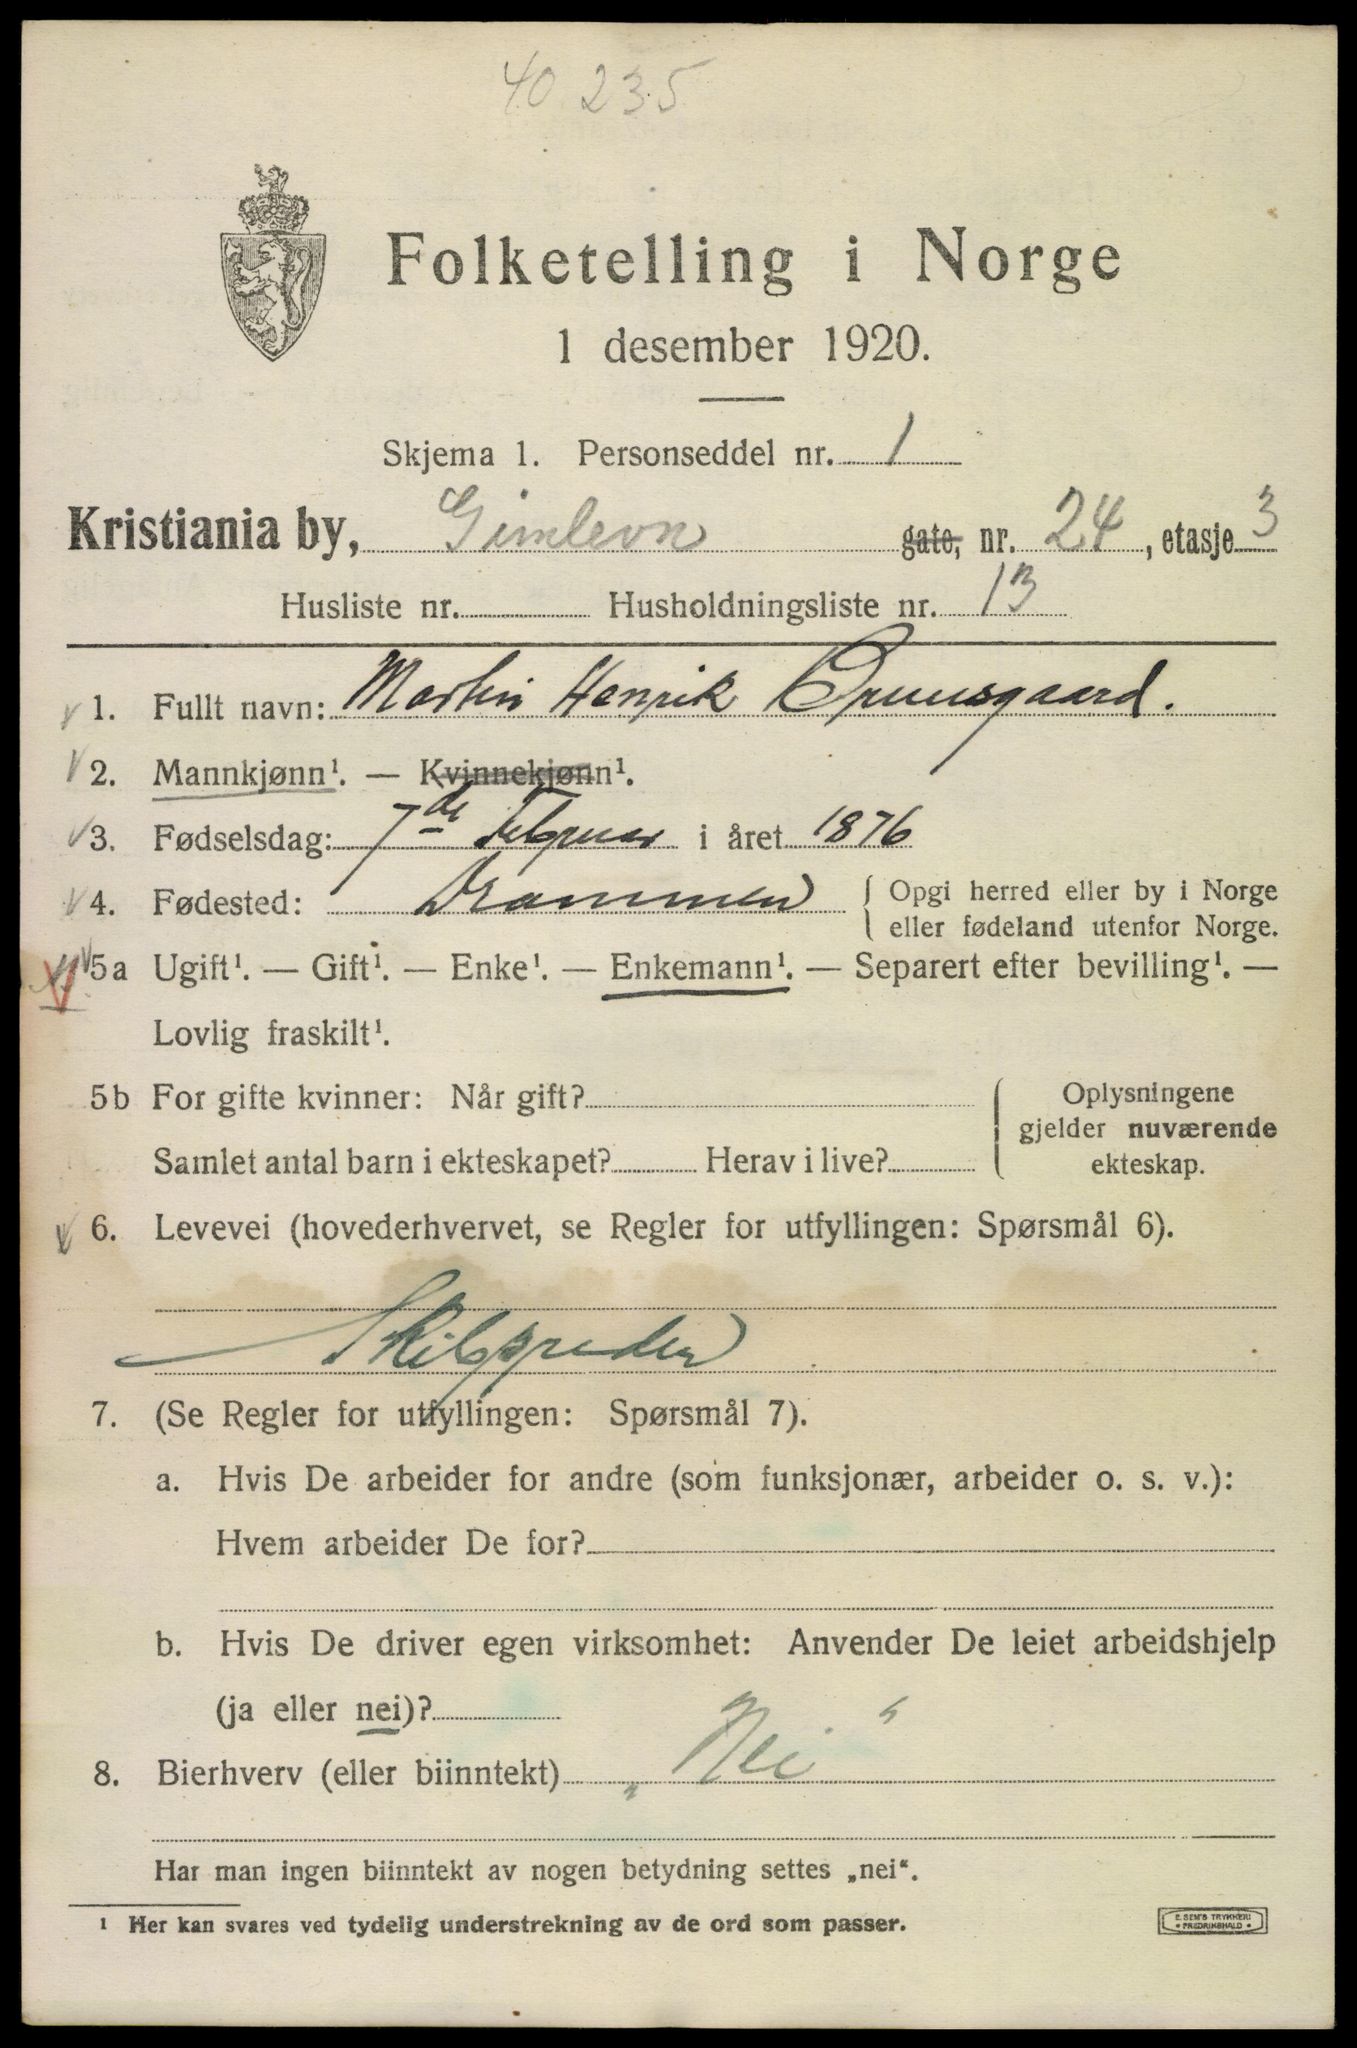 40 235
Folketelling i Norge
1 desember 1920.
Skjema 1. Personseddel nr. 1
Kristiania by, Gimlevn gate, nr. 24, etasje 3
Husliste nr. Husholdningsliste nr. 13
1. Fullt navn: Martin Henrik
2. Mannkjønn¹. — Kvinnekjønn¹.
3. Fødselsdag: 7de Februar i året 1876
4. Fødested: Drammen { Opgi herred eller by i Norge
eller fødeland utenfor Norge.
5a Ugift¹. — Gift¹. — Enke¹. — Enkemann¹. — Separert efter bevilling¹. —
Lovlig fraskilt¹.
5b For gifte kvinner: Når gift?
Samlet antal barn i ekteskapet? Herav i live?
Oplysningene
gjelder nuværende
ekteskap.
6. Levevei (hovederhvervet, se Regler for utfyllingen: Spørsmål 6).
Skibsreder
7. (Se Regler for utfyllingen: Spørsmål 7).
a. Hvis De arbeider for andre (som funksjonær, arbeider o. s. v.):
Hvem arbeider De for?
b. Hvis De driver egen virksomhet: Anvender De leiet arbeidshjelp
(ja eller nei)?
8. Bierhverv (eller biinntekt) „Nei“
Har man ingen biinntekt av nogen betydning settes „nei“.
¹ Her kan svares ved tydelig understrekning av de ord som passer.
E. SEM'S TRYKKERI
• FREDRIKSHALD •